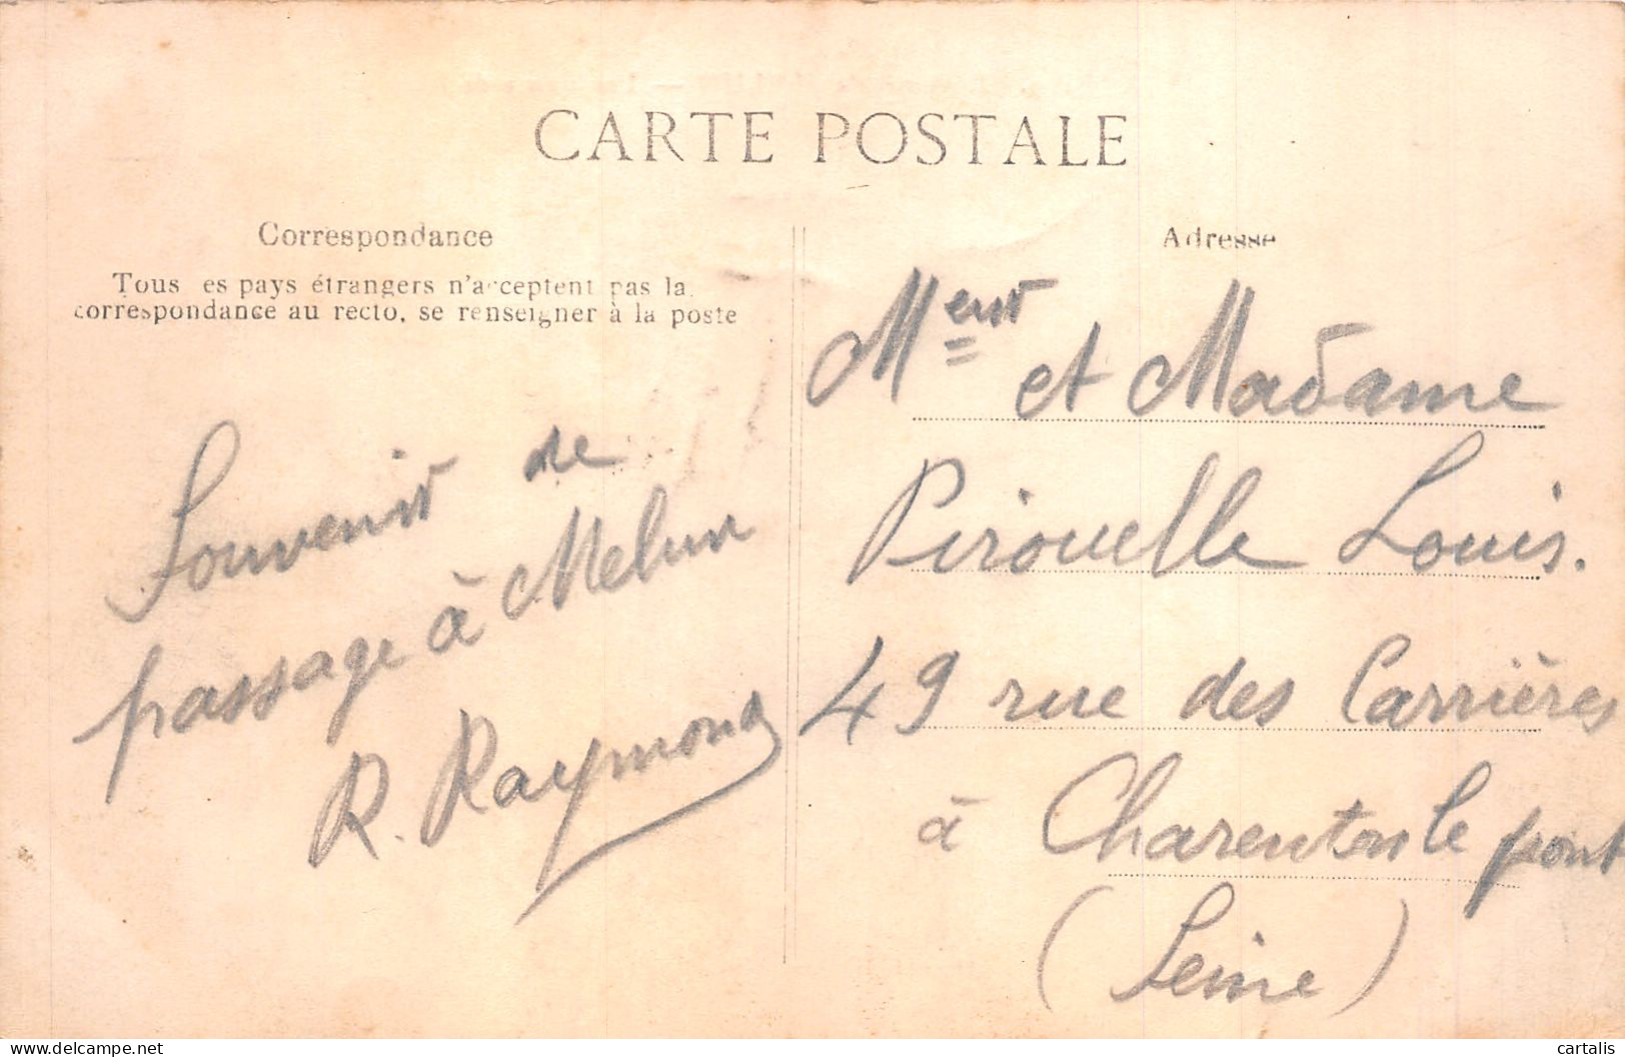 CARTE POSTALE
Correspondance
Tous es pays étrangers n'acceptent pas la
correspondance au recto, se renseigner à la poste
Souvenir de
passage à Melun
R. Raymond
Adresse
Meur et Madame
Pirouelle Louis.
49 rue des Carrières
à Charenton le pont
(Seine)
cartalis